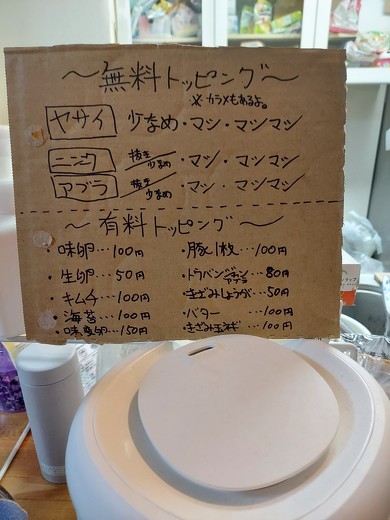 〜無料トッピング〜
※カラメもあるよ。
ヤサイ 少なめ・マシ・マシマシ
ニンニク 抜き/少なめ・マシ・マシマシ
アブラ 抜き/少なめ・マシ・マシマシ
〜有料トッピング〜
・味卵…100円
・生卵…50円
・キムチ…100円
・海苔…100円
・味変卵…150円
・豚1枚…100円
・きざみしょうが…50円
・バター…100円
・きざみ玉ネギ…100円